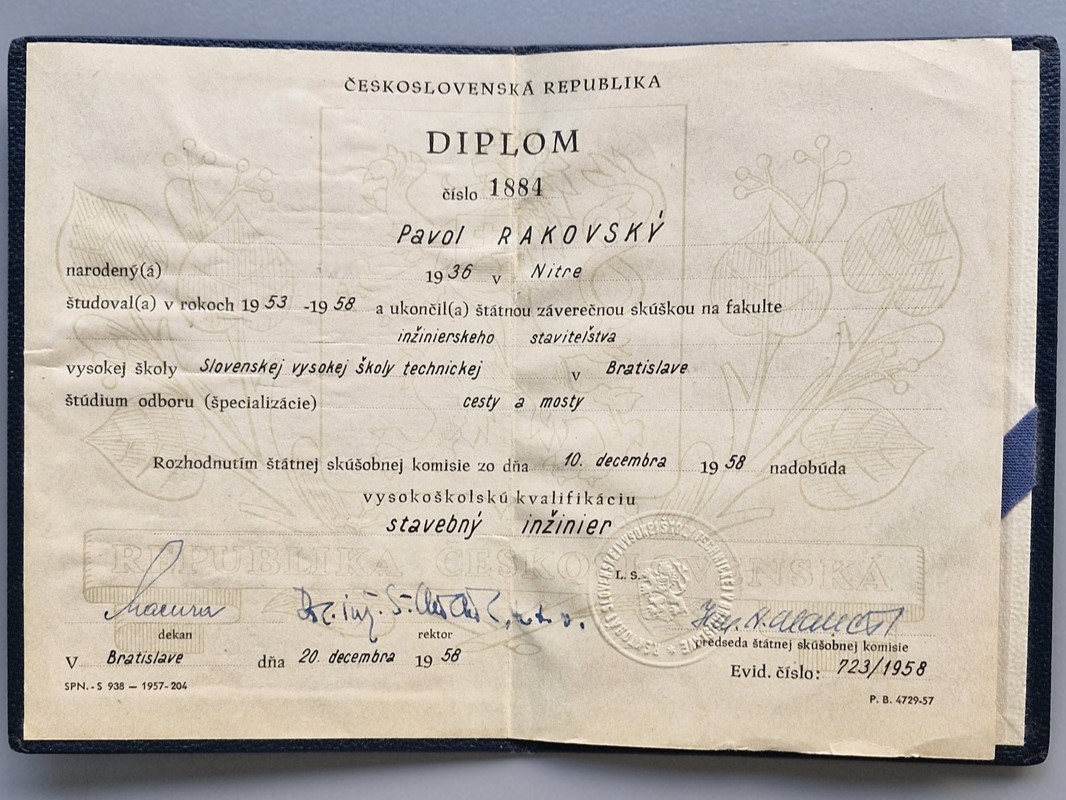 ČESKOSLOVENSKÁ REPUBLIKA
DIPLOM
číslo 1884
Pavol RAKOVSKÝ
narodený(á) 1936 v Nitre
študoval(a) v rokoch 1953 -1958 a ukončil(a) štátnou záverečnou skúškou na fakulte
inžinierskeho staviteľstva
vysokej školy Slovenskej vysokej školy technickej v Bratislave
štúdium odboru (špecializácie) cesty a mosty
Rozhodnutím štátnej skúšobnej komisie zo dňa 10. decembra 1958 nadobúda
vysokoškolskú kvalifikáciu
stavebný inžinier
REPUBLIKA ČESKOSLOVENSKÁ
L. S.
dekan rektor predseda štátnej skúšobnej komisie
V Bratislave dňa 20. decembra 1958 Evid. číslo: 723/1958
SPN. - S 938 — 1957-204 P. B. 4729-57